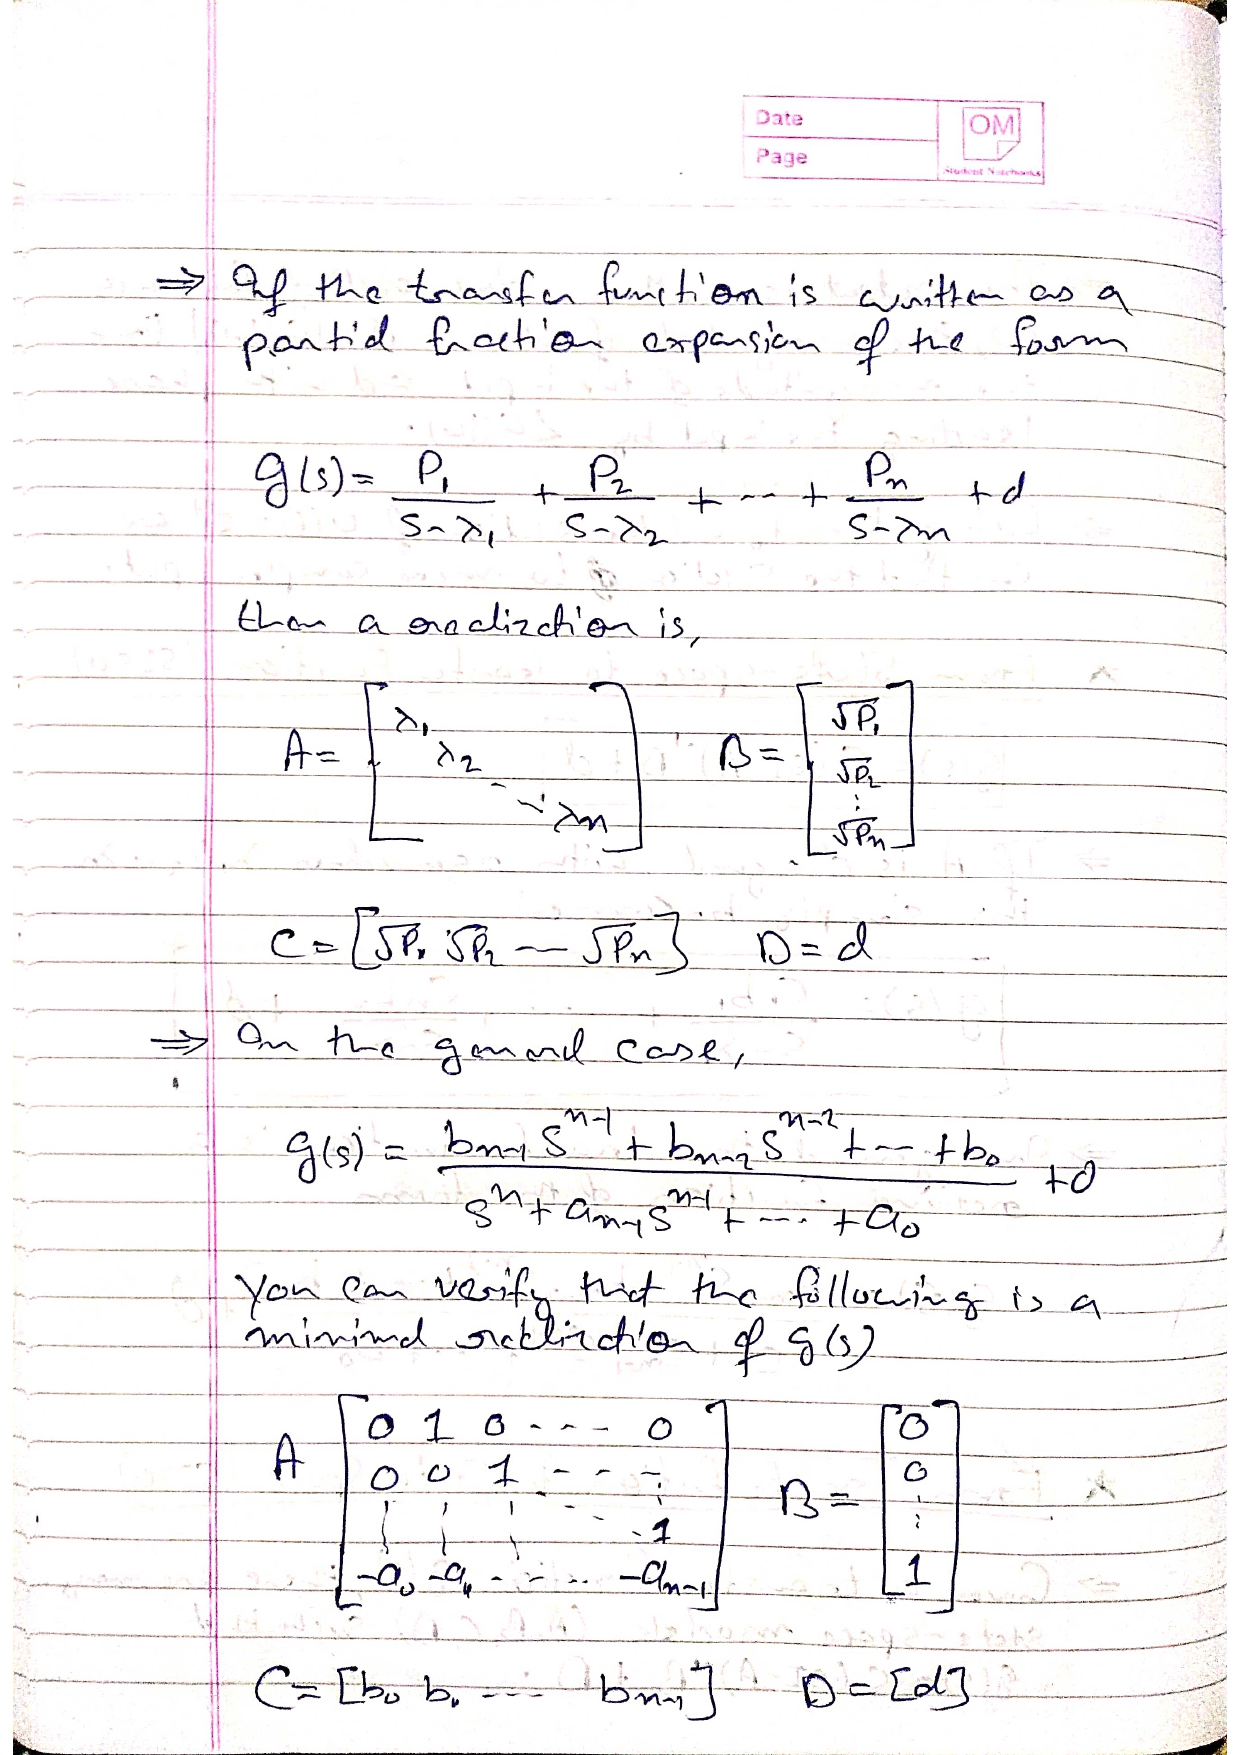 Date
Page
OM
Student Notebooks
⇒ If the transfer function is written as a
partial fraction expansion of the form
g(s) = P₁/(s-λ₁) + P₂/(s-λ₂) + --- + Pn/(s-λn) + d
then a realization is,
A = [λ₁ λ₂ ⋱ λn] B = [√P₁ √P₂ ⋮ √Pn]
C = [√P₁ √P₂ --- √Pn] D = d
⇒ In the general case,
g(s) = (bn-1 s^(n-1) + bn-2 s^(n-2) + --- + b₀)/(s^n + an-1 s^(n-1) + --- + a₀) + d
You can verify that the following is a
minimal realization of g(s)
A [0 1 0 --- 0; 0 0 1 --- ⋮; ⋮ ⋮ ⋮ ⋱ 1; -a₀ -a₁ --- -an-1] B = [0 0 ⋮ 1]
C = [b₀ b₁ --- bn-1] D = [d]